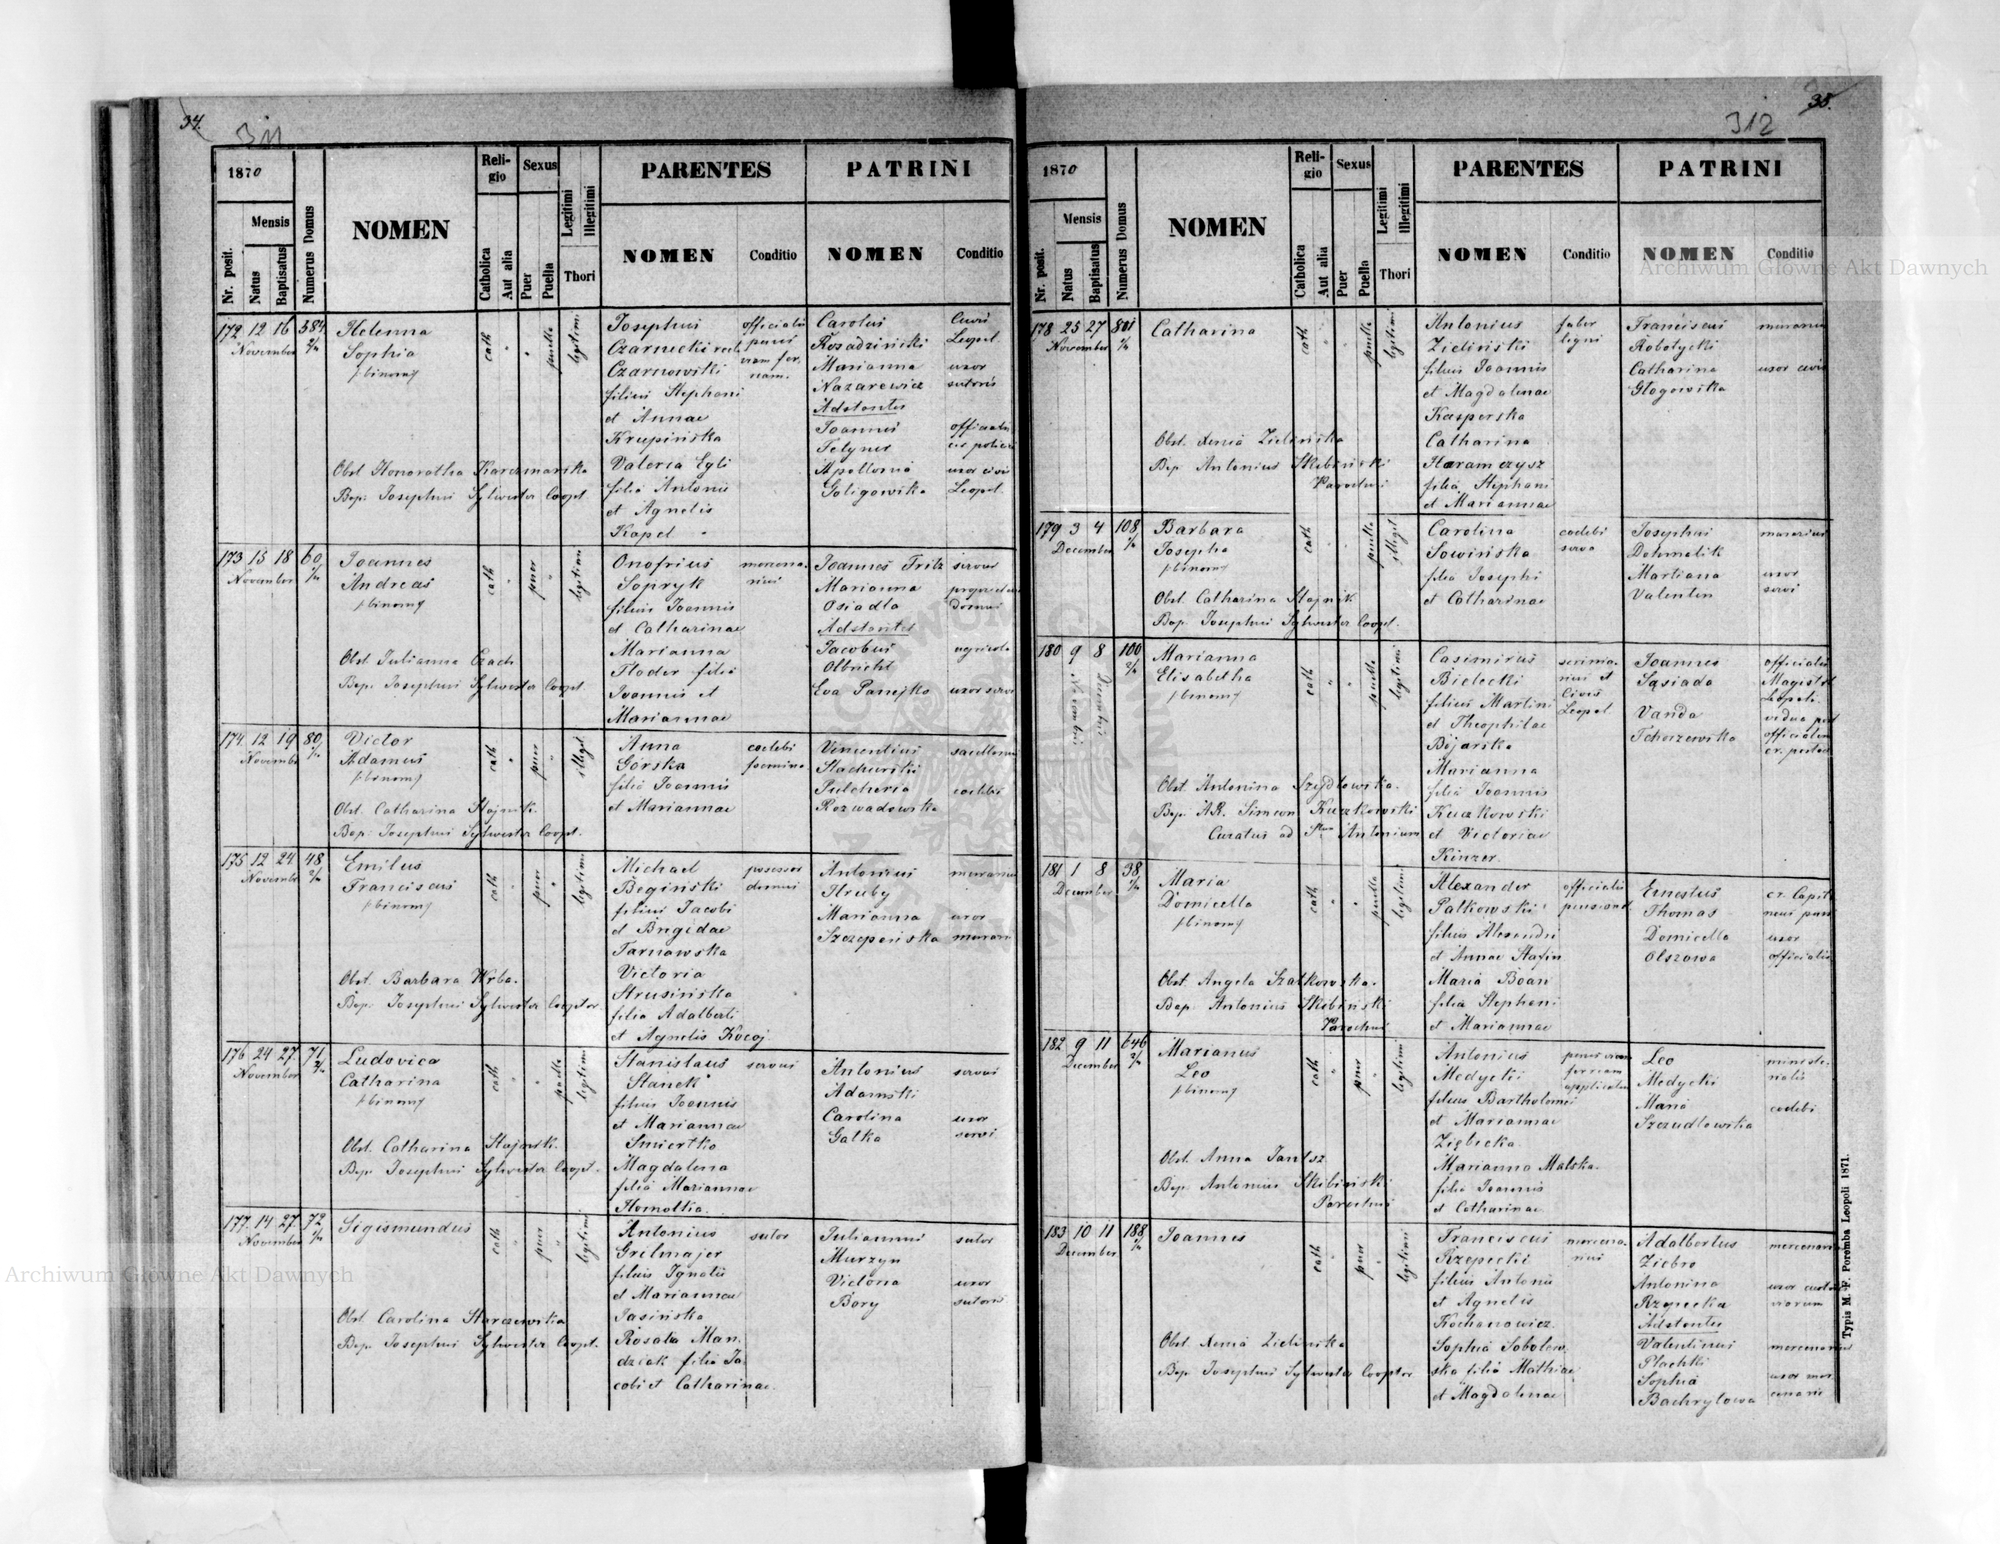 34.
311
1870
Nr. posit.
Mensis
Natus
Baptisatus
Numerus Domus
NOMEN
Religio
Catholica
Aut alia
Sexus
Puer
Puella
Legitimi
Illegitimi
Thori
PARENTES
NOMEN
Conditio
PATRINI
NOMEN
Conditio
172 12 16 384 2/4
November
Helenna
Sophia
/:binom:/
Obst Honoratha Karczmarska
Bap: Josephus Sylwester Coopt.
cath
puella
legitimi
Josephus
Czarnecki
Czarnowski
filius Stephani
et Annae
Krupińska
Valeria Egli
filia Antonii
et Agnetis
Kapel
Carolus
Rosadziński
Marianna
Nazarewicz
Adstantes
Joannes
Telyner
Apollonia
Goligowska
Civis
Leopol.
uxor
sutoris
uxor civis
Leopol.
173 15 18 60 1/4
November
Joannes
Andreas
/:binom:/
Obst. Julianna Czach
Bap: Josephus Sylwester Coopt.
cath
puer
legitimi
Onofrius
Sopryk
filius Joannis
et Catharinae
Marianna
Hoder filia
Joannis et
Mariannae
mercenarius
Joannes Fritz
Marianna
Osiadla
Adstantes
Jacobus
Olbricht
Eva Panejko
servus
agricola
uxor servi
174 12 19 80 1/4
November
Victor
Adamus
/:binom:/
Obst. Catharina Stojnik.
Bap: Josephus Sylwester Coopt.
cath
puer
illegit
Anna
Górska
filia Joannis
et Mariannae
coelebs
foemina
Vincentius
Stachurski
Pulcheria
Rozwadowska
coelebs
175 12 24 48 2/4
November
Emilus
Franciscus
/:binom:/
Obst. Barbara Wrba.
Bap: Josephus Sylwester Cooptor
cath
puer
legitimi
Michael
Begiński
filius Jacobi
et Brigidae
Tarnawska
Victoria
Strusińska
filia Adalberti
et Agnetis Kocoj.
possessor
domus
Antonius
Hruby
Marianna
Szczepańska
uxor
176 24 27 71 2/4
November
Ludovica
Catharina
/:binom:/
Obst. Catharina Stojnik.
Bap: Josephus Sylwester Coopt.
cath
puella
legitimi
Stanislaus
Stanek
filius Joannis
et Mariannae
Smiertka
Magdalena
filia Mariannae
Homoltia
servus
Antonius
Adamski
Carolina
Galka
servus
uxor
servi
177 14 27 72 2/4
November
Sigismundus
Obst. Carolina Starczewska
Bap: Josephus Sylwester Coopt.
cath
puer
legitimi
Antonius
Grelmajer
filius Ignatii
et Mariannae
Jasińska
Rosalia Man
dziak filia Ja
cobi et Catharinae.
sutor
Julianus
Murzyn
Victoria
Bory
sutor
uxor
sutoris
35.
312
1870
Nr. posit.
Mensis
Natus
Baptisatus
Numerus Domus
NOMEN
Religio
Catholica
Aut alia
Sexus
Puer
Puella
Legitimi
Illegitimi
Thori
PARENTES
NOMEN
Conditio
PATRINI
NOMEN
Conditio
178 25 27 801 1/4
November
Catharina
Obst. Xenia Zielińska
Bap Antonius Skibiński
Parochus
cath
puella
legitimi
Antonius
Zieliński
filius Joannis
et Magdalenae
Kasperska
Catharina
Haramczysz
filia Stephani
et Mariannae
faber
ligni
Franciscus
Robotycki
Catharina
Głogowska
murarius
uxor civis
179 3 4 108 1/4
December
Barbara
Josepha
/:binom:/
Obst. Catharina Stojnik
Bap: Josephus Sylwester Coopt.
cath
puella
illegit
Carolina
Sowińska
filia Josephi
et Catharinae
coelebs
serva
Josephus
Dohmalik
Martiana
Valenten
murarius
uxor
servi
180 9 8 100 2/4
Decembris
Novembris
Marianna
Elisabetha
/:binom:/
Obst. Antonina Szydłowska.
Bap. AR. Simeon Kuczkowski
Curatus ad Stum Antonium
cath
puella
legitimi
Casimirus
Bielecki
filius Martini
et Theophilae
Bijarska
Marianna
filia Joannis
Kuczkowski
et Victoriae
Kinzer.
civis
Leopol.
Joannes
Sąsiada
Vanda
Tchorzewska
officialis
Magistr.
Leopol.
181 1 8 38 1/4
December
Maria
Domicella
/:binom:/
Obst. Angela Szałkowska.
Bap. Antonius Skibiński
Parochus
cath
puella
legitimi
Alexander
Palkowski
filius Alexandri
et Annae Stafin
Maria Boan
filia Stephani
et Mariannae
officialis
pensionat.
Ernestus
Thomas
Domicella
Olszowa
uxor
officialis
182 9 11 646 2/4
December
Marianus
Leo
/:binom:/
Obst. Anna Jantsz
Bap. Antonius Skibiński
Parochus
cath
puer
legitimi
Antonius
Medycki
filius Bartholomei
et Mariannae
Ziębicka
Marianna Malska.
filia Joannis
et Catharinae
Leo
Medycki
Maria
Szczudłowska
ministerialis
coelebs
183 10 11 188 1/4
December
Joannes
Obst. Xenia Zielinska
Bap. Josephus Sylwester Cooptor
cath
puer
legitimi
Franciscus
Rzepecki
filius Antonii
et Agnetis
Kochanowicz.
Sophia Sobolew
ska filia Mathiae
et Magdalenae
mercenarius
Adalbertus
Ziebro
Antonina
Rzepecka
Adstantes
Valentinus
Plachki
Sophia
Bachrylowa
mercenarius
mercenarius
Typis M. F. Poremba Leopoli 1871.
Archiwum Główne Akt Dawnych
Archiwum Główne Akt Dawnych